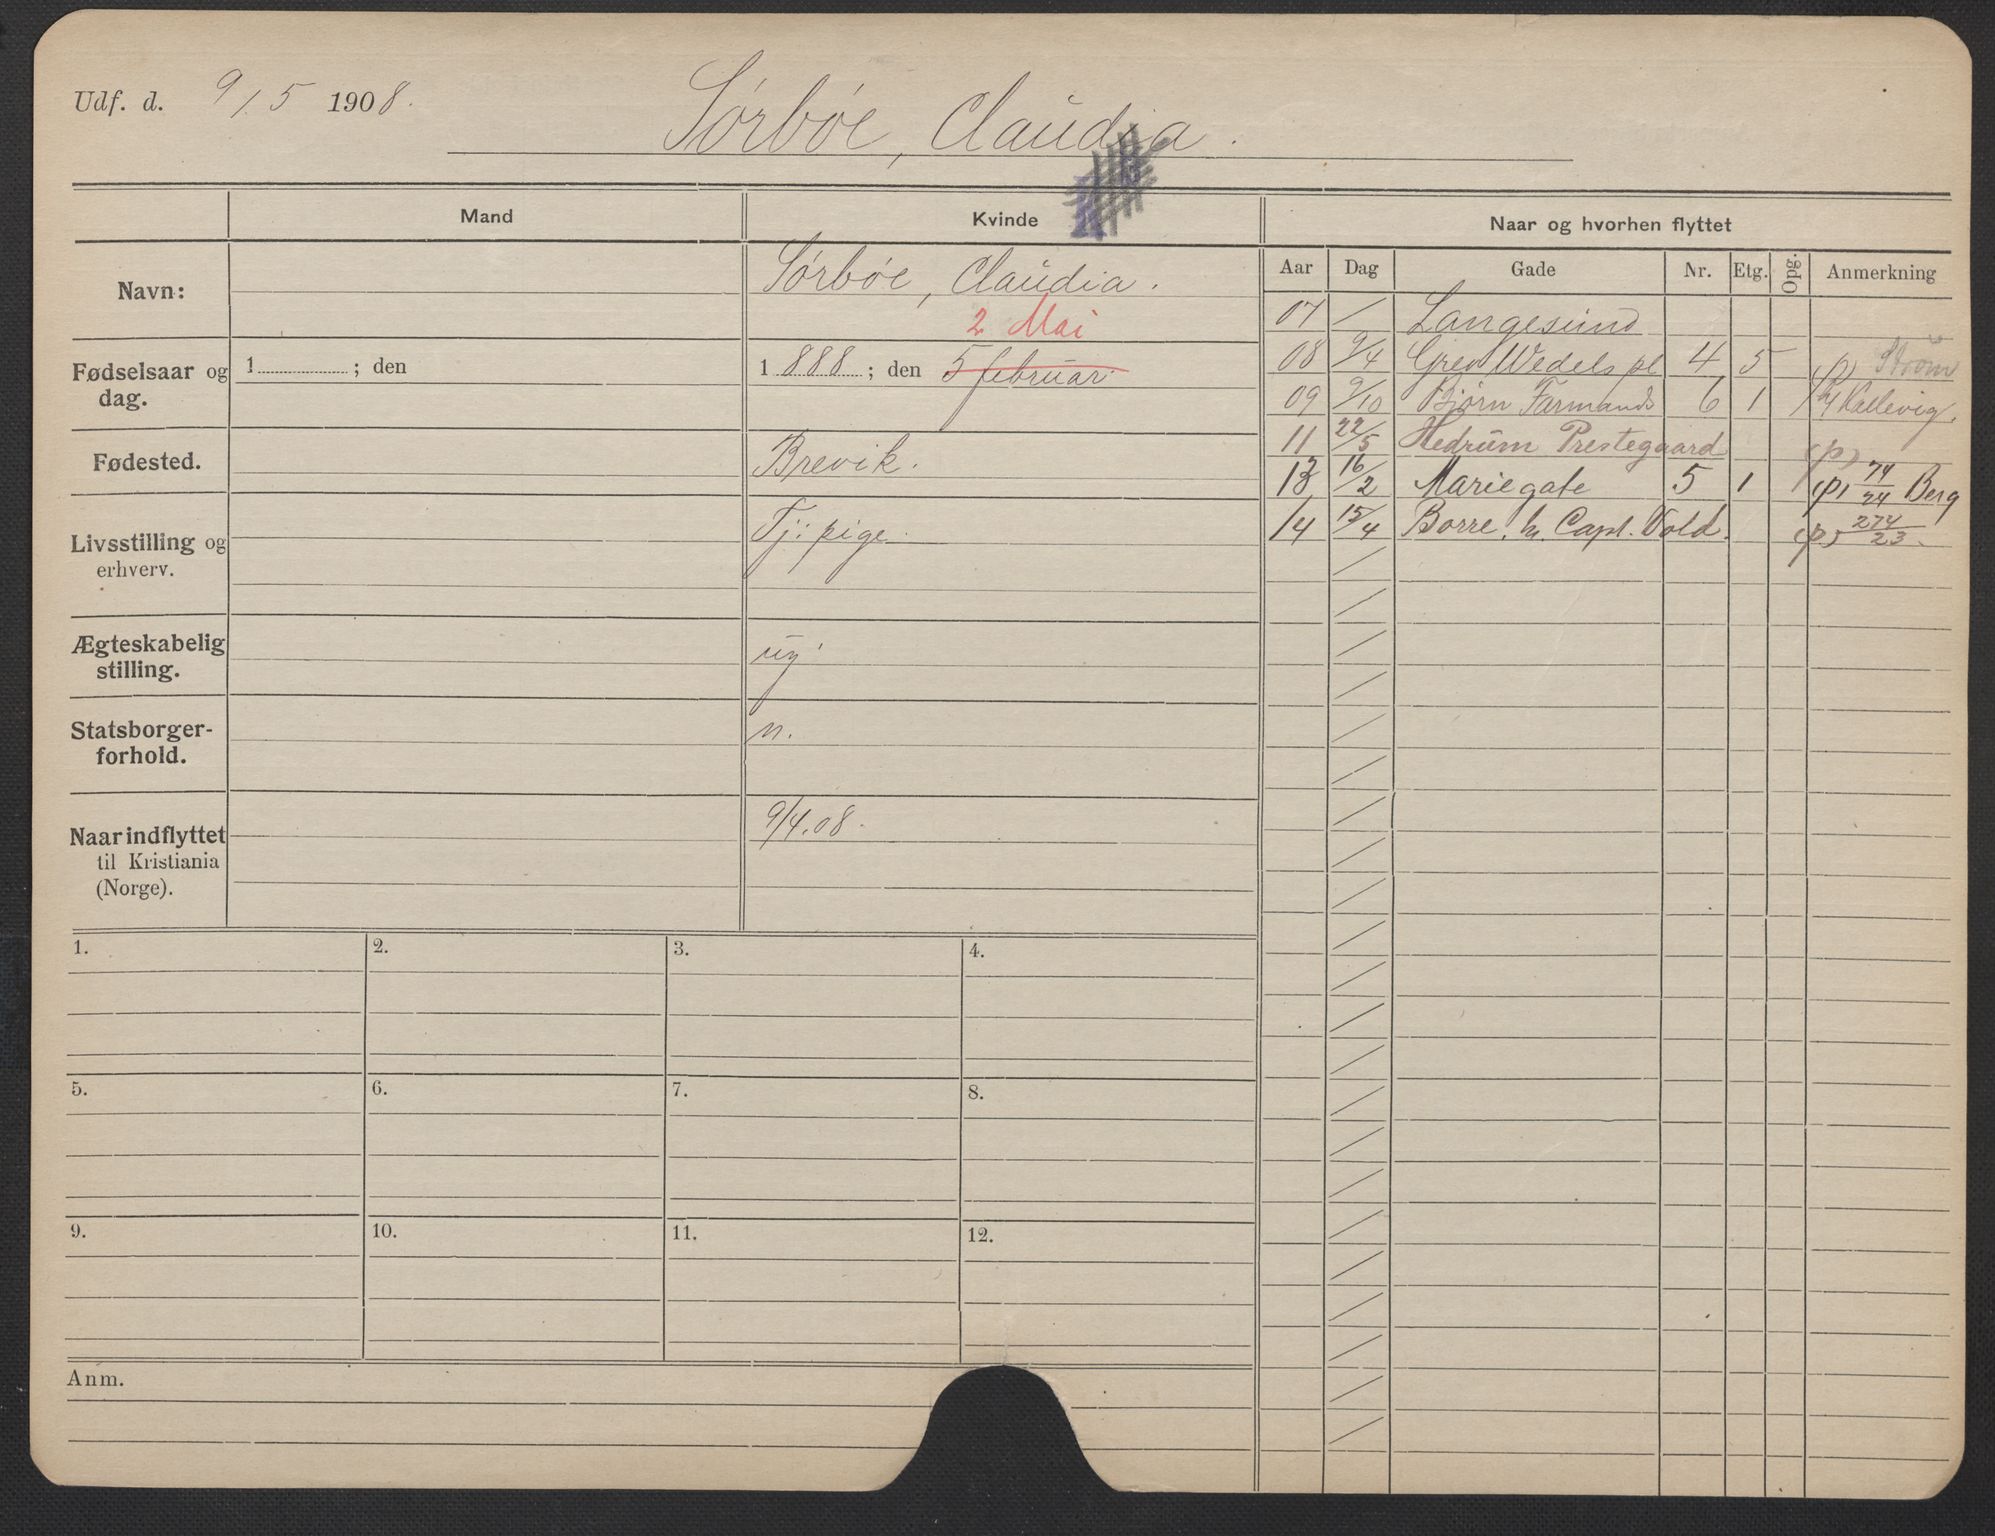 Udf. d. 9/5 1908.
Sørbøe, Claudia.
Mand
Kvinde
Naar og hvorhen flyttet
Aar Dag Gade Nr. Etg. Opg. Anmerkning
Navn:
Sørbøe, Claudia.
2 Mai
Fødselsaar og dag.
1 ; den
1888; den 5 februar.
Fødested.
Brevik.
Livsstilling og erhverv.
Tj: pige.
Ægteskabelig stilling.
ug.
Statsborgerforhold.
n.
Naar indflyttet til Kristiania (Norge).
9/4.08.
07 / Langesund
08 9/4 Grev Wedels pl 4 5 (p) Strøm
09 9/10 Bjørn Farmands 6 1 Hallevig.
11 22/5 Hedrum Prestegaard (p)
13 16/2 Mariegate 5 1 (p) 74/24 Berg
14 15/4 Borre, h. Capt. Vold. (p) 274/23.
1. 2. 3. 4.
5. 6. 7. 8.
9. 10. 11. 12.
Anm.